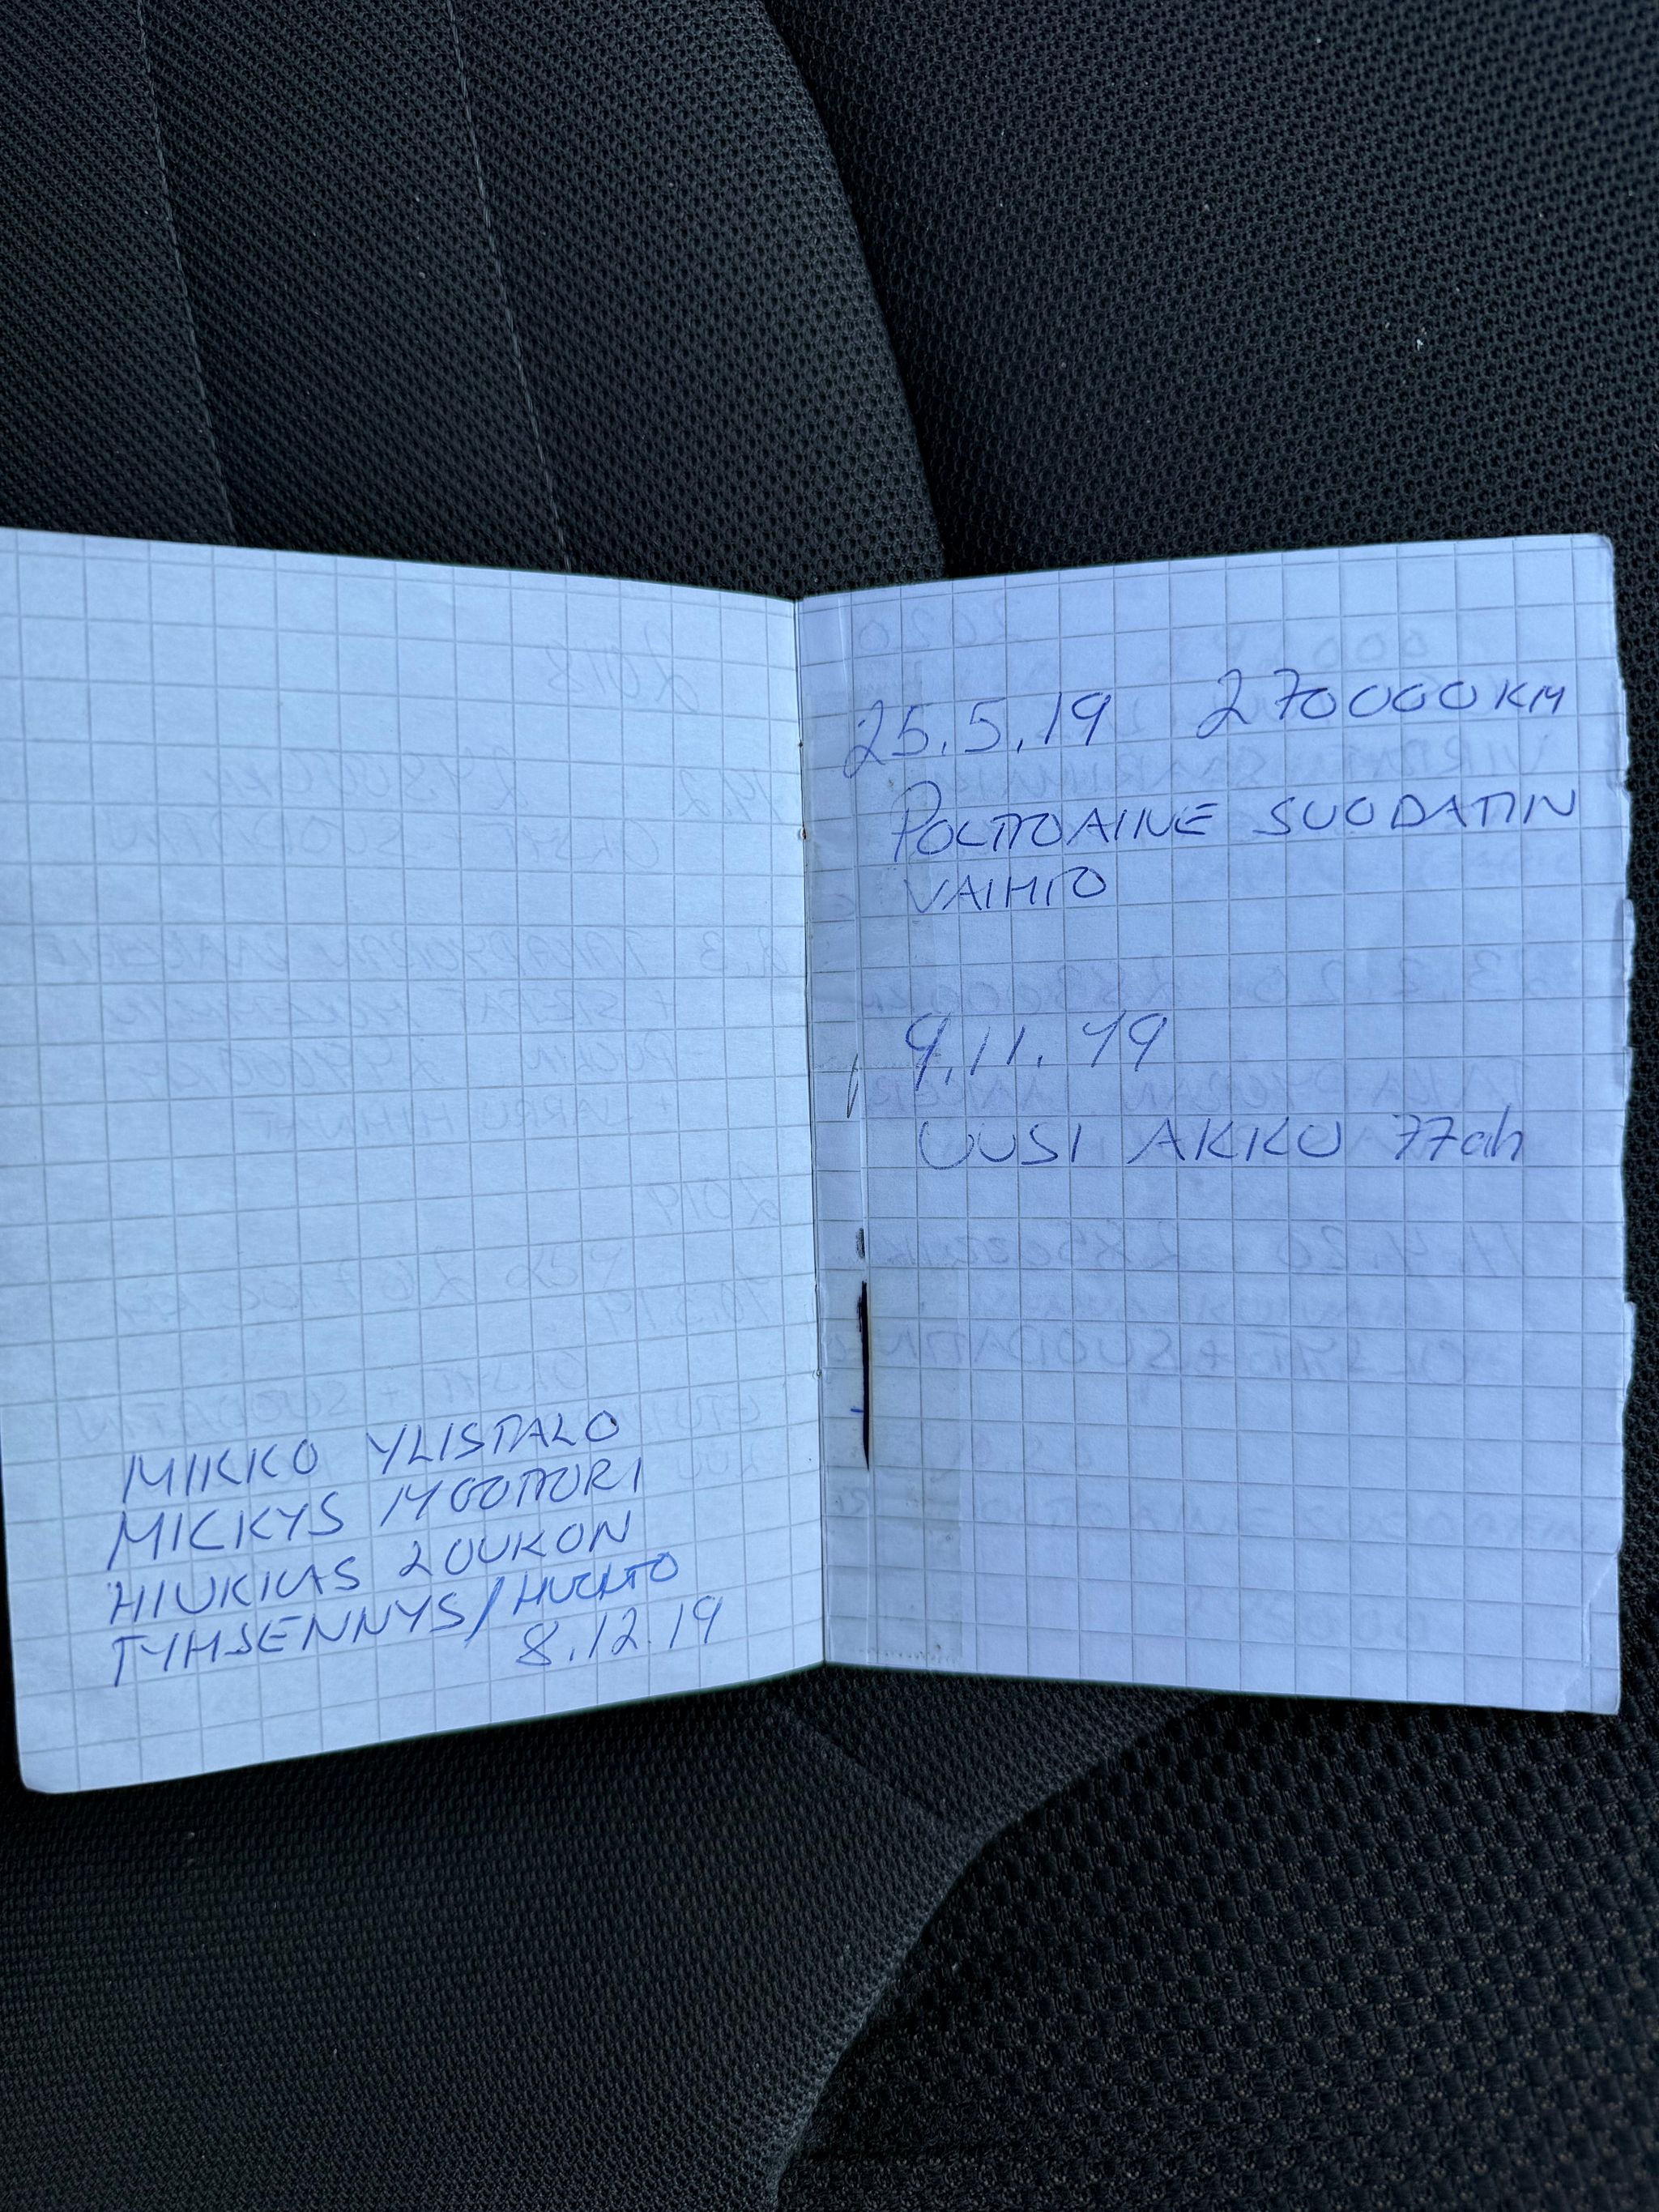 MIKKO YLISTALO
MICKYS MOOTTORI
HIUKKAS LOUKON
TYHJENNYS/HUOLTO
8.12.19
25.5.19 270000KM
POLTTOAINE SUODATTIN
VAIHTO
9.11.19
UUSI AKKU 77ah